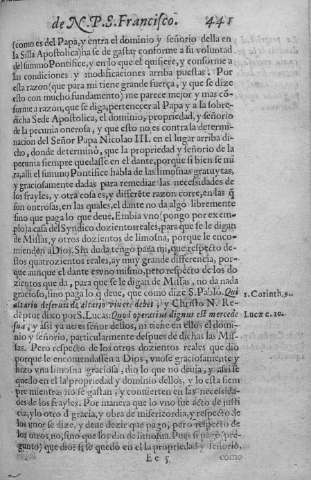 de N. P. S. Francisco. 441
(como es del Papa, y entra el dominio y señorio della en
la Silla Apostolica) ha se de gastar conforme a su voluntad
del sumo Pontifice, y en lo que el quisiere, y conforme a
su condiciones y modificaciones arriba puestas: Por
esta razon (que para mi tiene grande fuerça, y que se dize
esto con mucho fundamento) me parece mejor y mas cō-
forme a razon, que se diga, pertenecer al Papa y a la sobre-
dicha Sede Apostolica, el dominio, propriedad, y señorio
de la pecunia onerosa, y que esto no es contra la determi-
nacion del Señor Papa Nicolao III. en el lugar arriba di-
cho, donde determinò, que la propriedad y señorio de la
pecunia siempre quedasse en el dante, porque si bien se mi
ra, alli el sumo Pontifice habla de las limosnas gratuytas,
y graciosamente dadas para remediar las necessidades de
los frayles, y otra cosa es, y differēte razon corre, en las q̄
son onerosas, en las quales, el dante no da algo libremente
sino que paga lo que deue. Embia vno (pongo por exem-
plo) a casa del Syndico dozientos reales, para que se le digan
de Missas, y otros dozientos de limosna, porque le enco-
mienden a Dios. Sin duda tengo para mi, que respecto de-
stos quatrocientos reales, ay muy grande differencia, por-
que aunque el dante es vno mismo, pero respecto de los do
zientos que da, para que se le digan de Missas, no da nada
gracioso, sino paga lo q̄ deue, que como dize S. Pablo. Qui
altario deseruit de altario viuere debet, y Christo N. Re-
dēptor dixo por S. Lucas: Qui operatius dignus est mercede
sua, y assi ya no es señor dellos, ni tiene en ellos el domi-
nio y señorio, particularmente despues de dichas las Mis-
sas. Pero respecto de los otros dozientos reales que dio
porque le encomendassen a Dios, vuose graciosamente y
hizo vna limosna graciosa, dio lo que no deuia, y assi se
quedo en el la propriedad y dominio dellos, y lo esta siem
pre mientras no se gastan, y conuierten en las necessida-
des de los frayles. Por manera que lo vno fue acto de justi
cia, y lo otro d̄ gracia, y obra de misericordia, y respecto de
los vnos se dize, y deue dezir que pagò, pero respecto de
los otros, no, sino que los dio de limosna. Pues si pagò (pre-
gunto) que dirè si se quedò en el la propriedad y señorio,
Ee 5 como
1. Corinth. 9.
Lucæ c. 10.